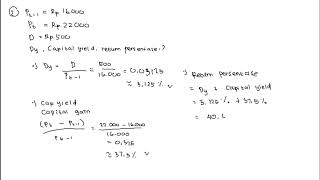 ② Pt-1 = Rp 16.000
Pt = Rp 22.000
D = Rp 500
Dy, Capital yield, return persentase?
•) Dy = D / Pt-1 = 500 / 16.000 = 0,03125
≈ 3,125 % ✓
•) Cap yield
Capital gain
(Pt - Pt-1) / Pt-1 = 22.000 - 16.000 / 16.000
= 0,375
≈ 37,5 % ✓
•) Return persentase
= Dy + Capital yield
= 3,125 % + 37,5 %
= 40,6